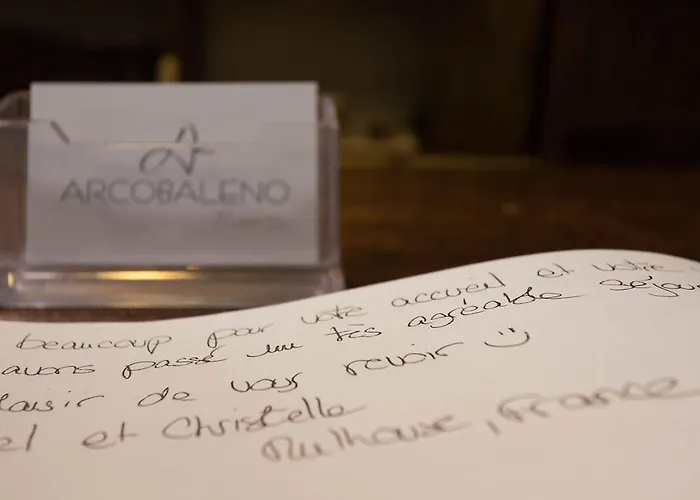 ARCOBALENO
beaucoup pour votre accueil et votre
avons passé un très agréable séjour
laisir de vous revoir :)
el et Christelle
Mulhouse, France